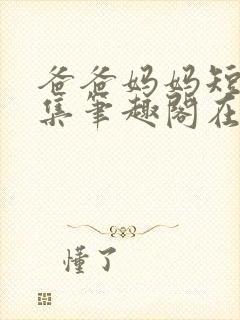 爸爸妈妈短
集笔趣阁在
懂了